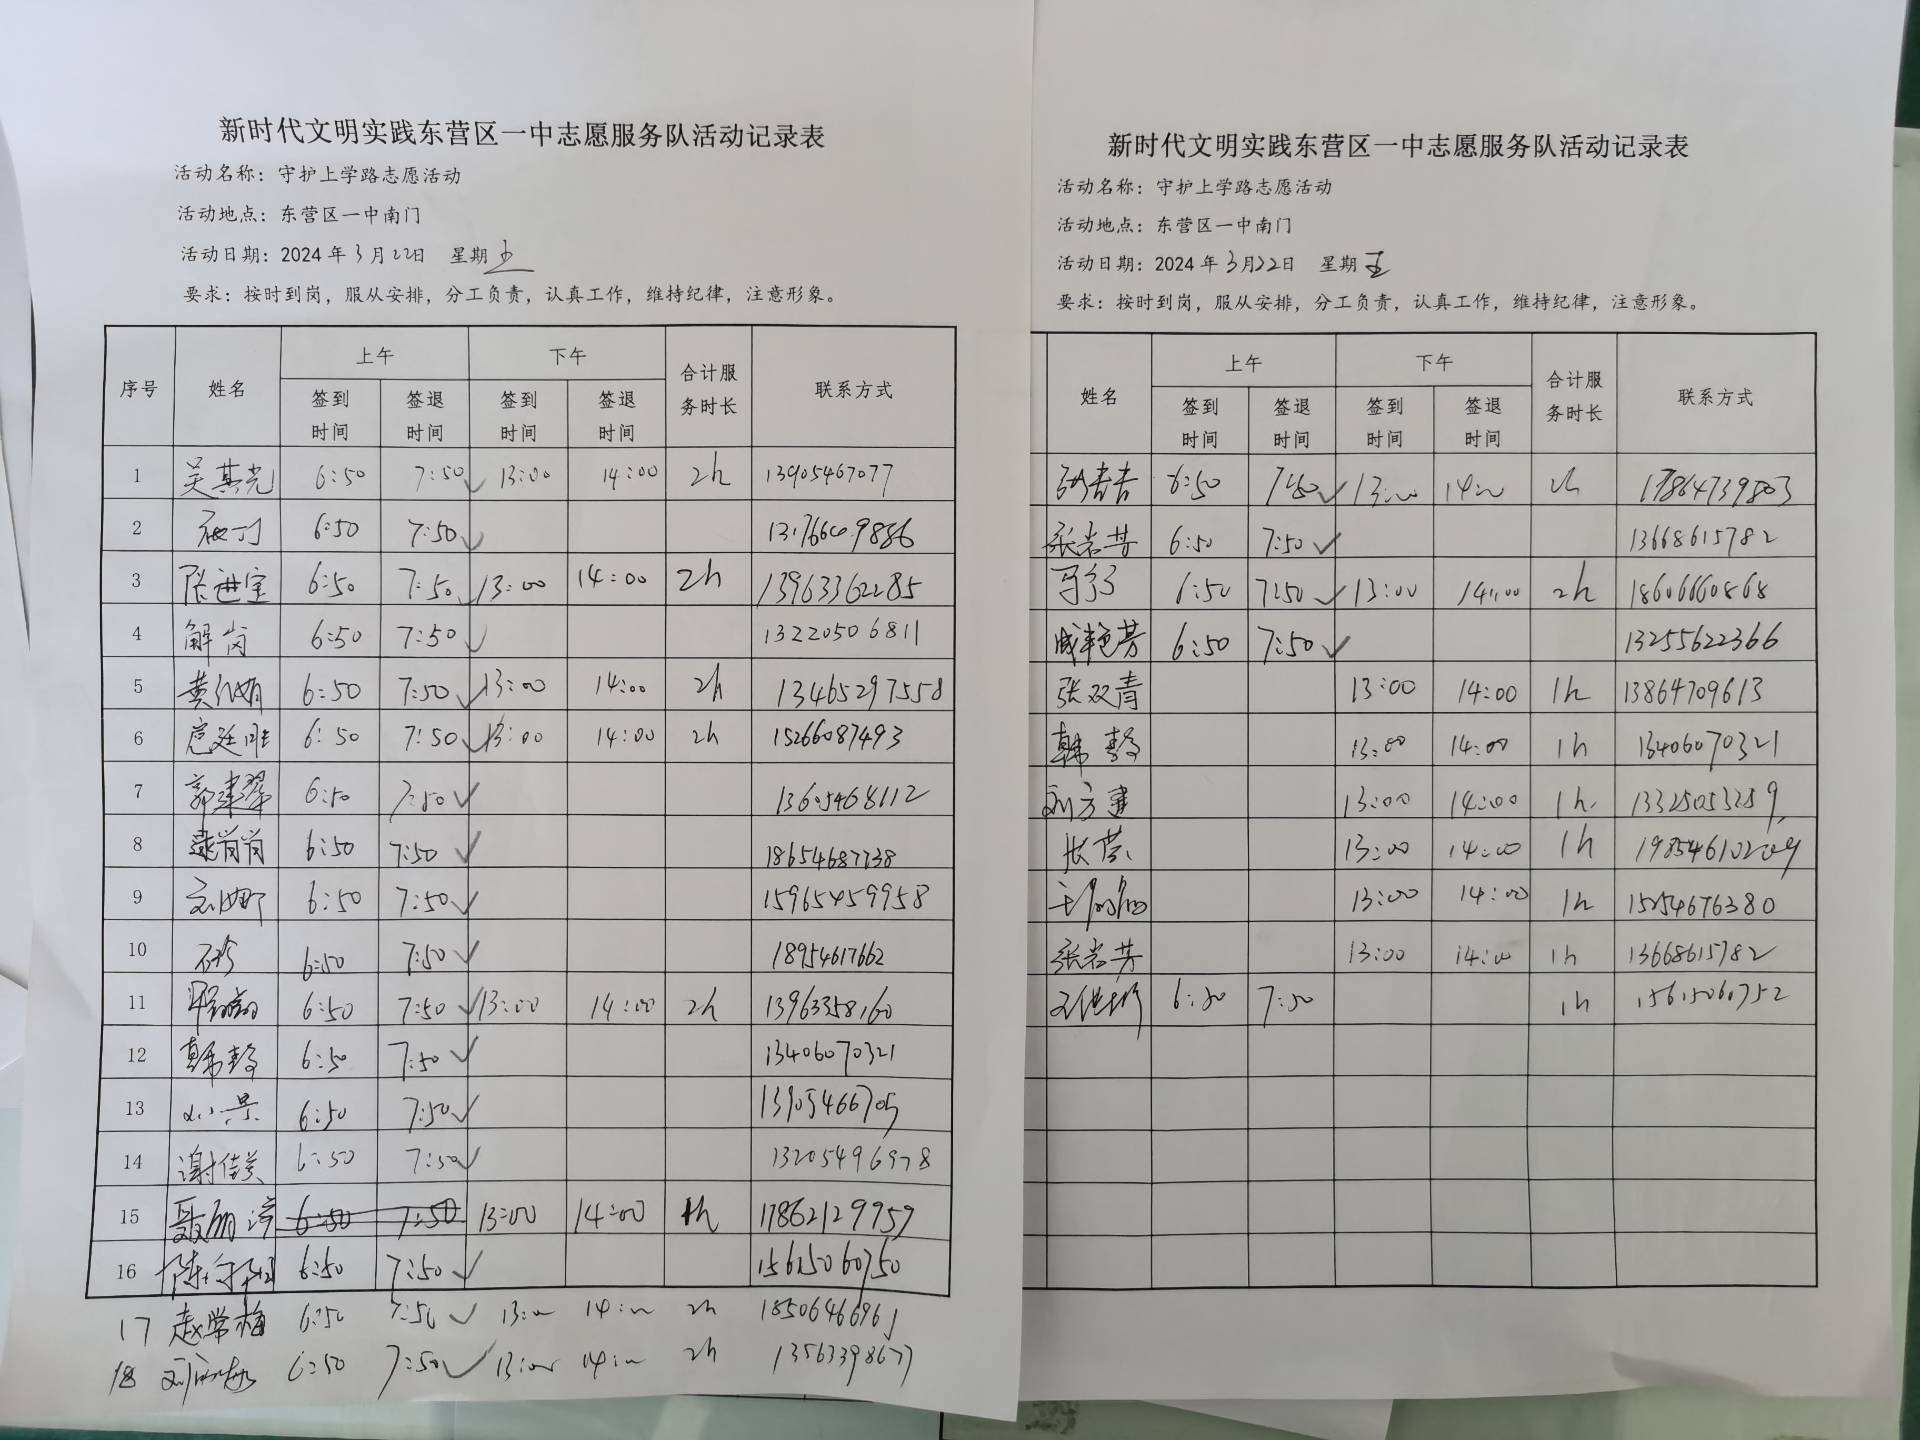 新时代文明实践东营区一中志愿服务队活动记录表
活动名称：守护上学路志愿活动
活动地点：东营区一中南门
活动日期：2024年3月22日 星期五
要求：按时到岗，服从安排，分工负责，认真工作，维持纪律，注意形象。
序号 姓名 上午 下午 合计服务时长 联系方式
签到时间 签退时间 签到时间 签退时间
1 吴其光 6:50 7:50 ✓ 13:00 14:00 2h 13905467077
2 6:50 7:50 ✓
3 张进宝 6:50 7:50 ✓ 13:00 14:00 2h 13963362285
4 解岗 6:50 7:50 ✓ 13220506811
5 6:50 7:50 ✓ 13:00 14:00 2h 13465297558
6 6:50 7:50 ✓ 13:00 14:00 2h 15266087493
7 郭建翠 6:50 7:50 ✓ 13605468112
8 逯岗岗 6:50 7:50 ✓ 18654687738
9 6:50 7:50 ✓ 15965459958
10 石珍 6:50 7:50 ✓ 18954617662
11 6:50 7:50 ✓ 13:00 14:00 2h 13963358160
12 韩静 6:50 7:50 ✓ 13406070321
13 6:50 7:50 ✓ 13905466705
14 谢佳美 6:50 7:50 ✓ 13205496978
15 聂丽萍 6:50 7:50 13:00 14:00 1h 17862129957
16 6:50 7:50 ✓ 15615060750
17 赵常梅 6:50 7:50 ✓ 13:00 14:00 2h 18506466961
18 6:50 7:50 ✓ 13:00 14:00 2h 13563398677
新时代文明实践东营区一中志愿服务队活动记录表
活动名称：守护上学路志愿活动
活动地点：东营区一中南门
活动日期：2024年3月22日 星期五
要求：按时到岗，服从安排，分工负责，认真工作，维持纪律，注意形象。
姓名 上午 下午 合计服务时长 联系方式
签到时间 签退时间 签到时间 签退时间
6:50 7:50 ✓ 13:00 14:00 2h 17864739803
张岩芳 6:50 7:50 ✓ 13668615782
6:50 7:50 ✓ 13:00 14:00 2h 18606660868
成艳芳 6:50 7:50 ✓ 13255622366
张双青 13:00 14:00 1h 13864709613
韩静 13:00 14:00 1h 13406070321
刘方建 13:00 14:00 1h 13325053259
张营 13:00 14:00 1h 19854610209
13:00 14:00 1h 15254676380
张岩芳 13:00 14:00 1h 13668615782
6:50 7:50 1h 15615060752